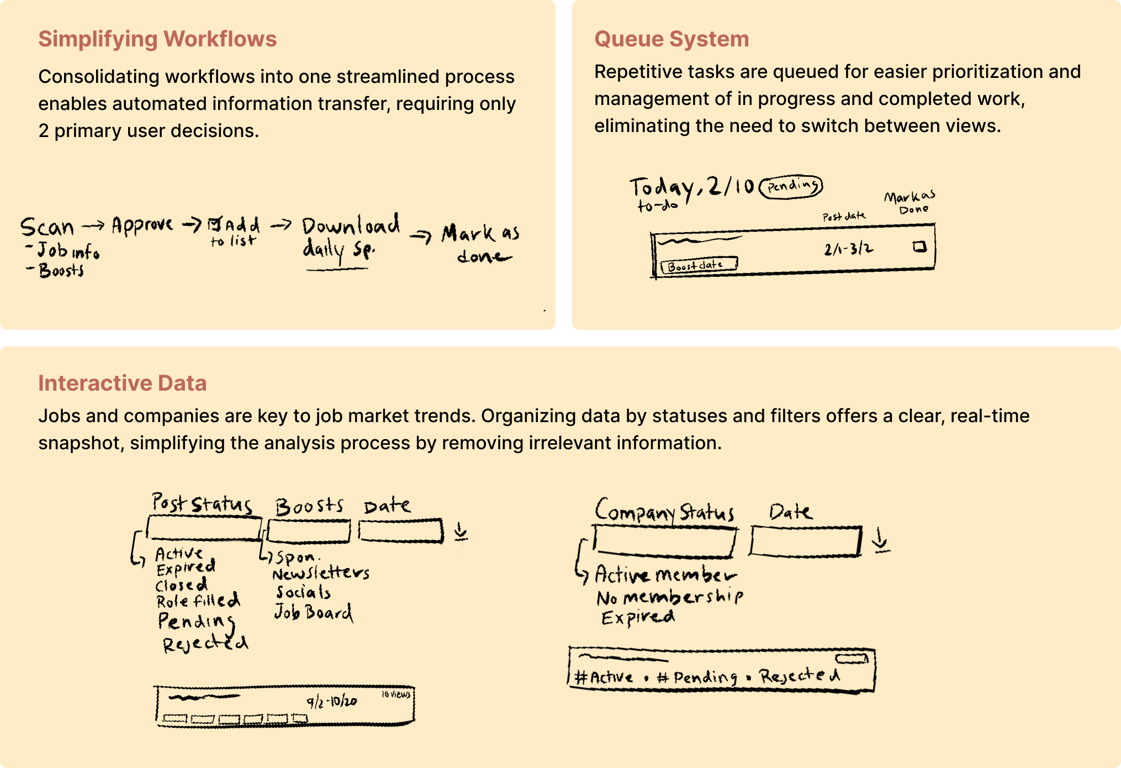 Simplifying Workflows
Consolidating workflows into one streamlined process
enables automated information transfer, requiring only
2 primary user decisions.
Scan → Approve → ☑ Add → Download → Mark as
- Job info to list daily sp. done
- Boosts
Queue System
Repetitive tasks are queued for easier prioritization and
management of in progress and completed work,
eliminating the need to switch between views.
Today, 2/10 Pending
to-do
Post date Mark as
Done
2/1-3/2
Boost date
Interactive Data
Jobs and companies are key to job market trends. Organizing data by statuses and filters offers a clear, real-time
snapshot, simplifying the analysis process by removing irrelevant information.
Post Status Boosts Date
Active
Expired
Closed
Role filled
Pending
Rejected
Spon.
Newsletters
Socials
Job Board
9/2-10/20 10 views
Company Status Date
Active member
No membership
Expired
#Active • #Pending • Rejected